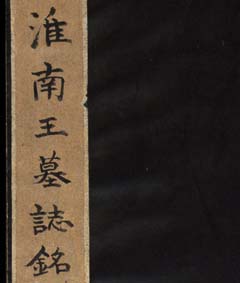 淮南王墓誌銘